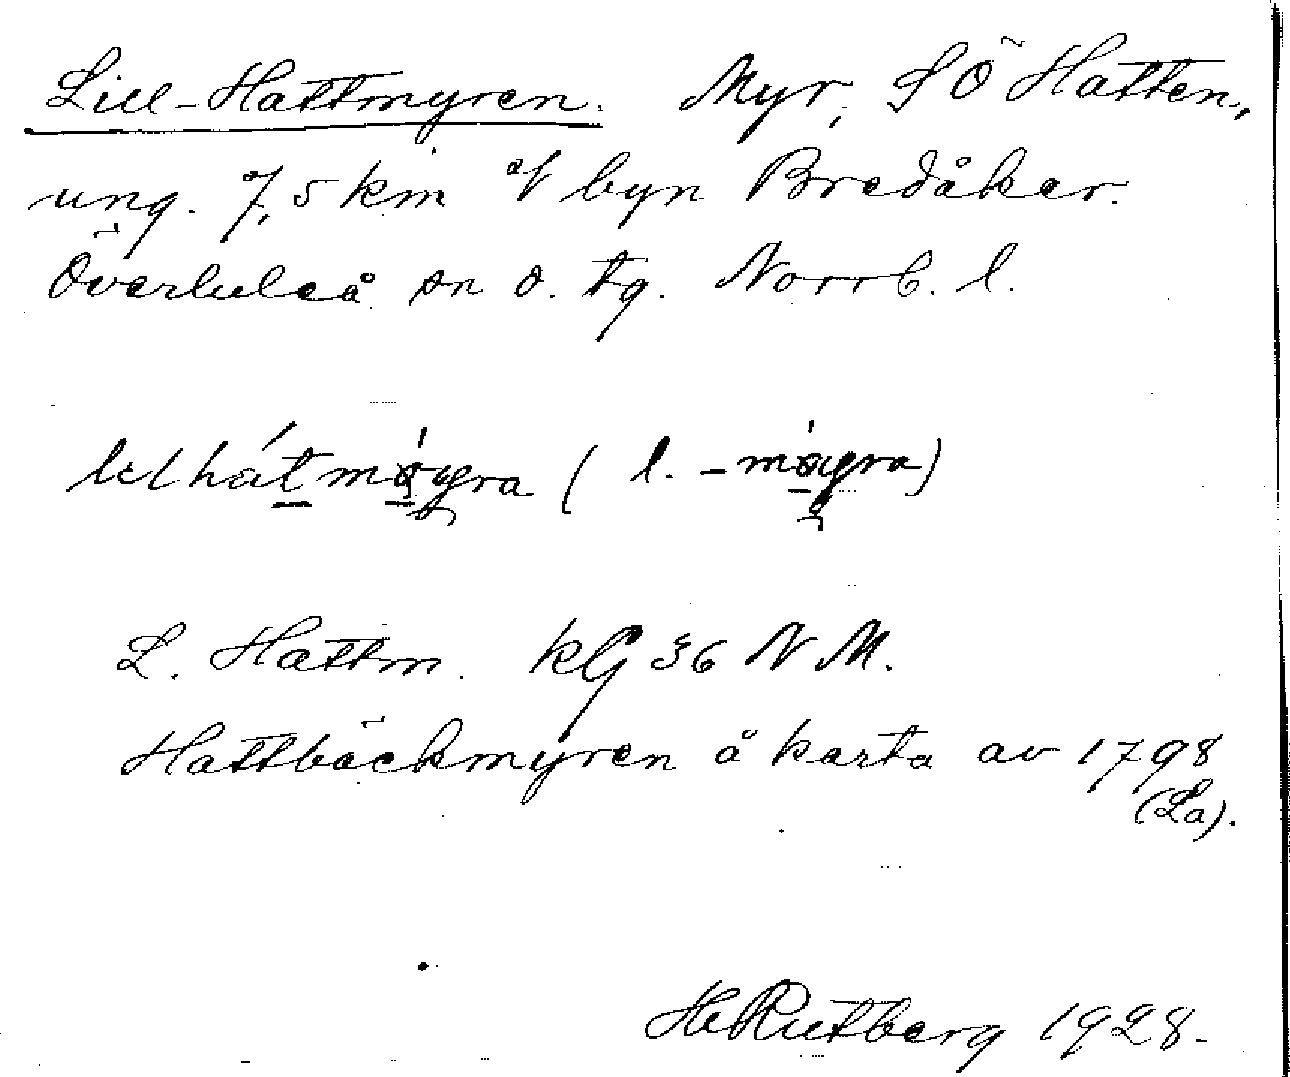 Lill-Hattmyren. Myr, SÖ Hatten,
ung. 7,5 km V byn Bredåker.
Överluleå sn o. tg. Norrb. l.
( l. -
L. Hattm. kG 36 N M.
Hattbäckmyren å karta av 1798
(La).
HeRutberg 1928.